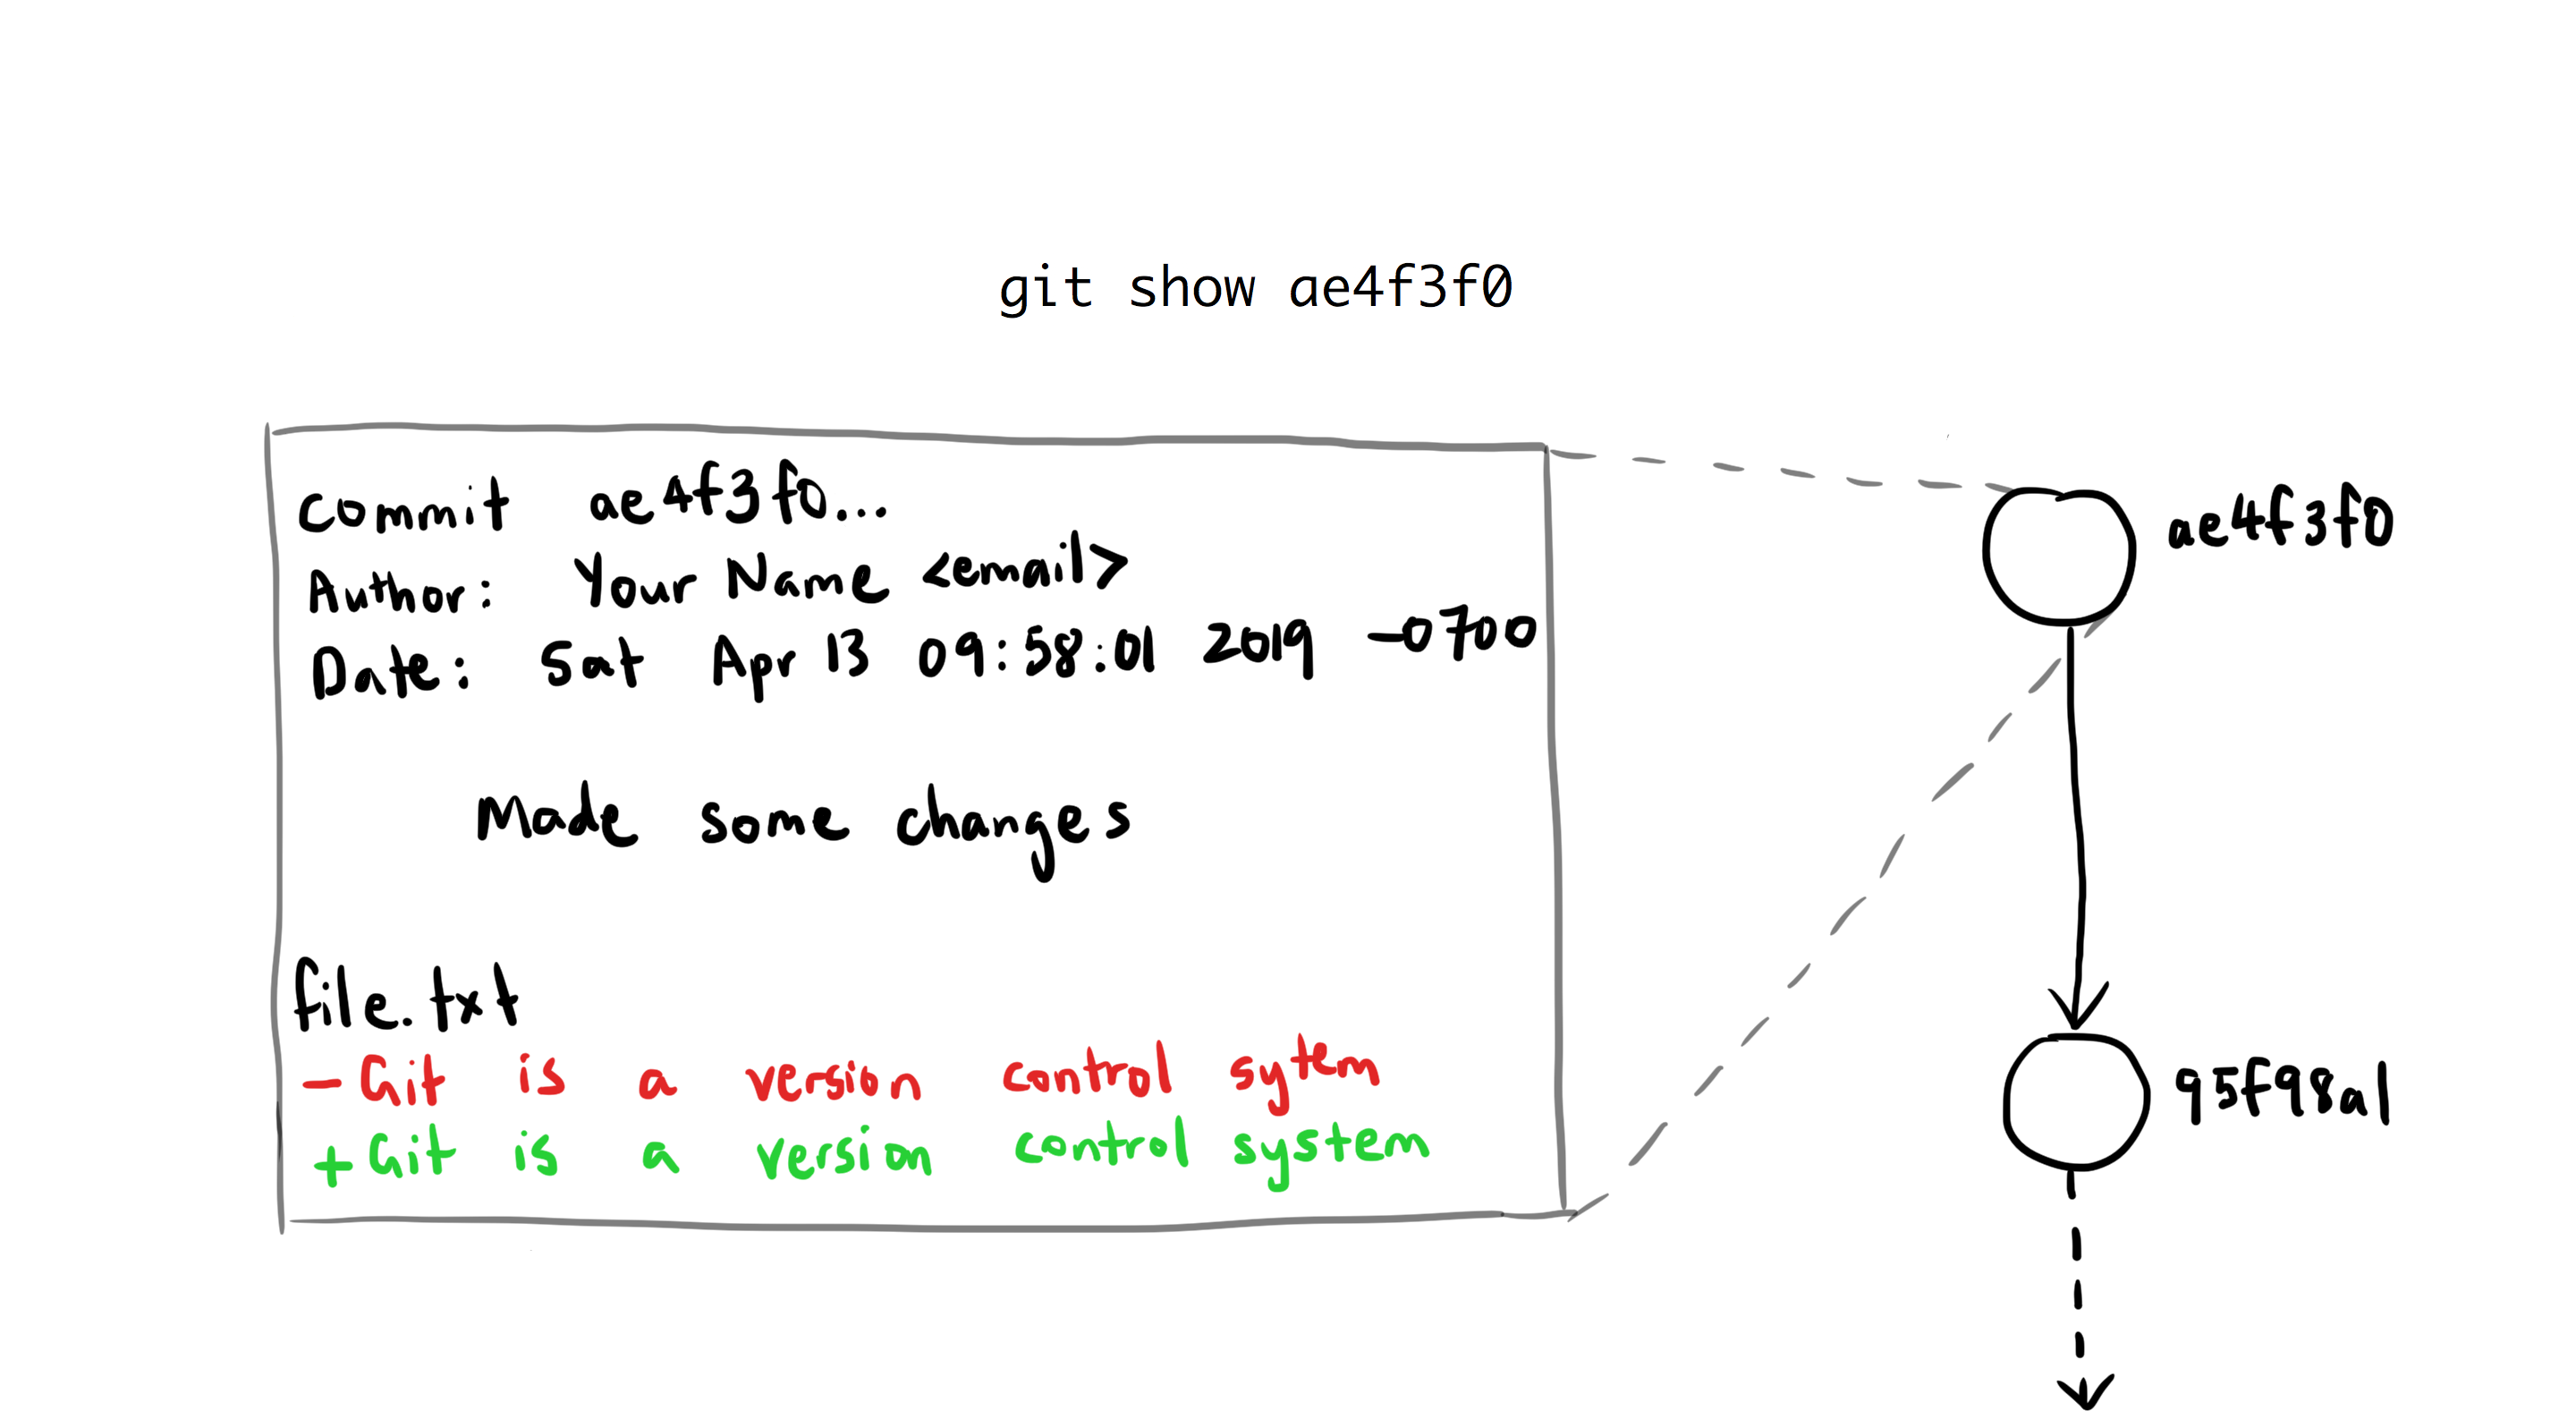 git show ae4f3f0
commit ae4f3f0...
Author: Your Name <email>
Date: Sat Apr 13 09:58:01 2019 -0700
Made some changes
file.txt
- Git is a version control sytem
+ Git is a version control system
ae4f3f0
95f98a1